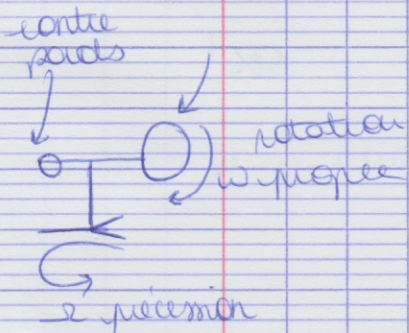 contre
poids
rotation
ω propre
Ω précession